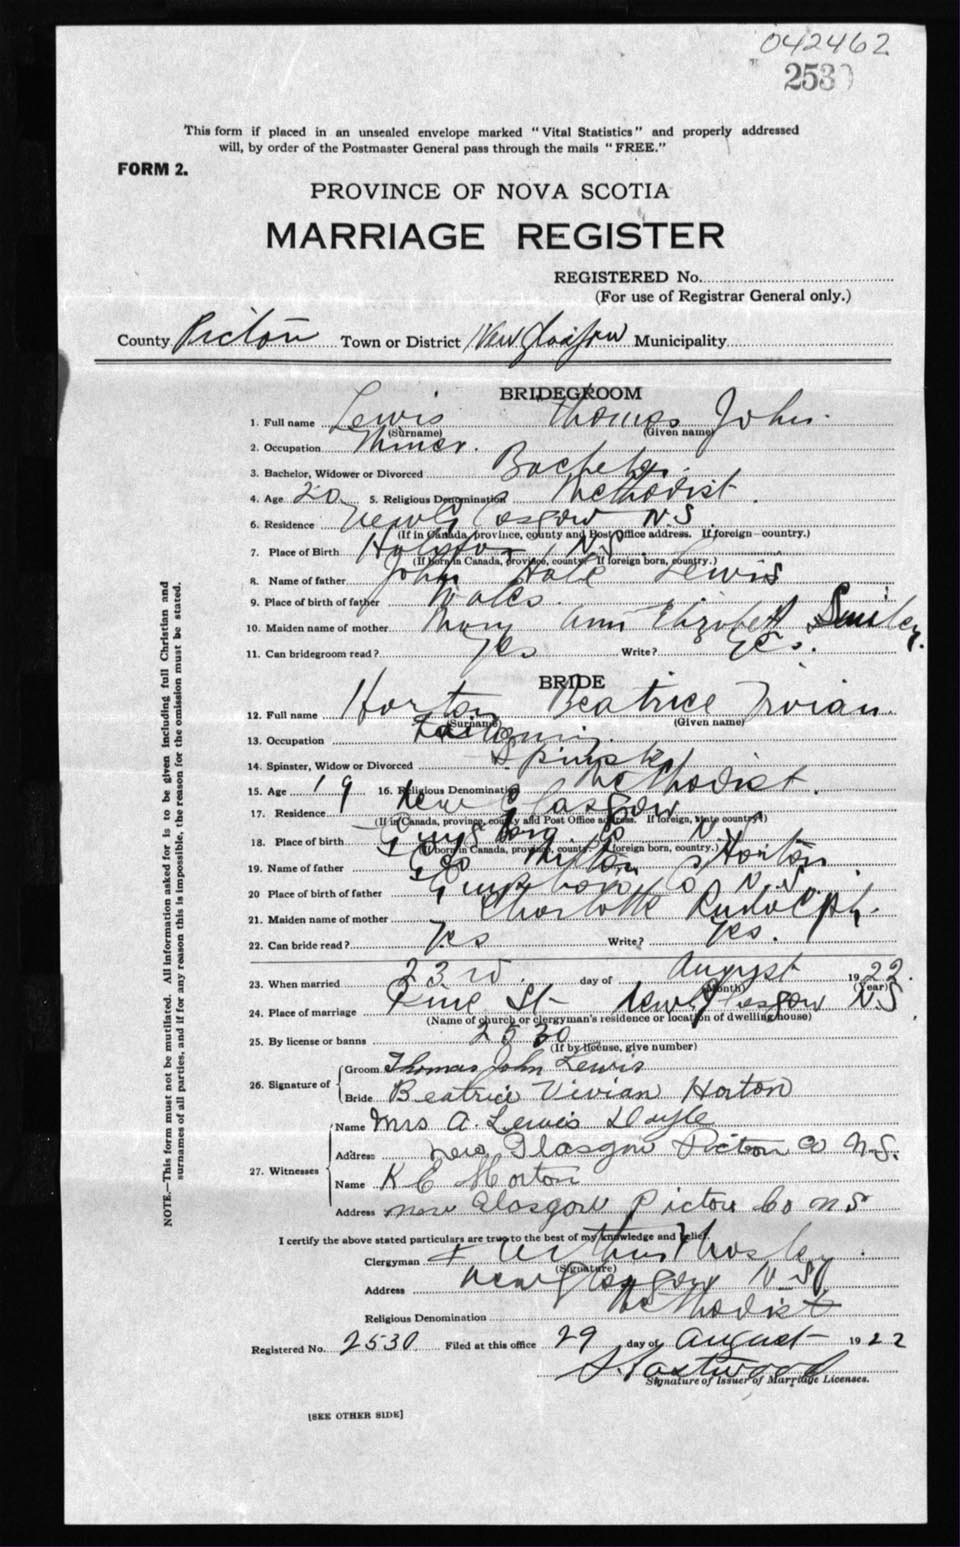 042462
2530
This form if placed in an unsealed envelope marked "Vital Statistics" and properly addressed
will, by order of the Postmaster General pass through the mails "FREE."
FORM 2.
PROVINCE OF NOVA SCOTIA
MARRIAGE REGISTER
REGISTERED No.
(For use of Registrar General only.)
County Pictou Town or District New Glasgow Municipality
BRIDEGROOM
1. Full name Lewis Thomas John
(Surname) (Given name)
2. Occupation Miner.
3. Bachelor, Widower or Divorced Bachelor.
4. Age 20 5. Religious Denomination Methodist.
6. Residence New Glasgow N.S.
(If in Canada, province, county and Post Office address. If foreign—country.)
7. Place of Birth N.S.
(If born in Canada, province, county. If foreign born, country.)
8. Name of father John Lewis
9. Place of birth of father Wales.
10. Maiden name of mother Mary Ann Elizabeth Smiley.
11. Can bridegroom read? Yes Write? Yes.
BRIDE
12. Full name Horton Beatrice Vivian.
(Surname) (Given name)
13. Occupation
14. Spinster, Widow or Divorced Spinster
15. Age 19 16. Religious Denomination Methodist.
17. Residence New Glasgow
(If in Canada, province, county and Post Office address. If foreign, state country.)
18. Place of birth Guysboro Co N.S.
(If born in Canada, province, county. If foreign born, country.)
19. Name of father Horton
20 Place of birth of father Guysboro Co N.S.
21. Maiden name of mother Charlotte Rudolph.
22. Can bride read? Yes Write? Yes.
23. When married 23rd day of August 1922.
(Month) (Year)
24. Place of marriage St New Glasgow N.S.
(Name of church or clergyman's residence or location of dwelling house)
25. By license or banns 2530
(If by license, give number)
26. Signature of Groom Thomas John Lewis
Bride Beatrice Vivian Horton
27. Witnesses Name Mrs A. Lewis Doyle
Address New Glasgow Pictou Co N.S.
Name K E Horton
Address New Glasgow Pictou Co N S
I certify the above stated particulars are true to the best of my knowledge and belief.
Clergyman Arthur
(Signature)
Address New Glasgow N.S.
Religious Denomination Methodist
Registered No. 2530 Filed at this office 29 day of August 1922
Signature of Issuer of Marriage Licenses.
[SEE OTHER SIDE]
NOTE.—This form must not be mutilated. All information asked for is to be given including full Christian and
surnames of all parties, and if for any reason this is impossible, the reason for the omission must be stated.